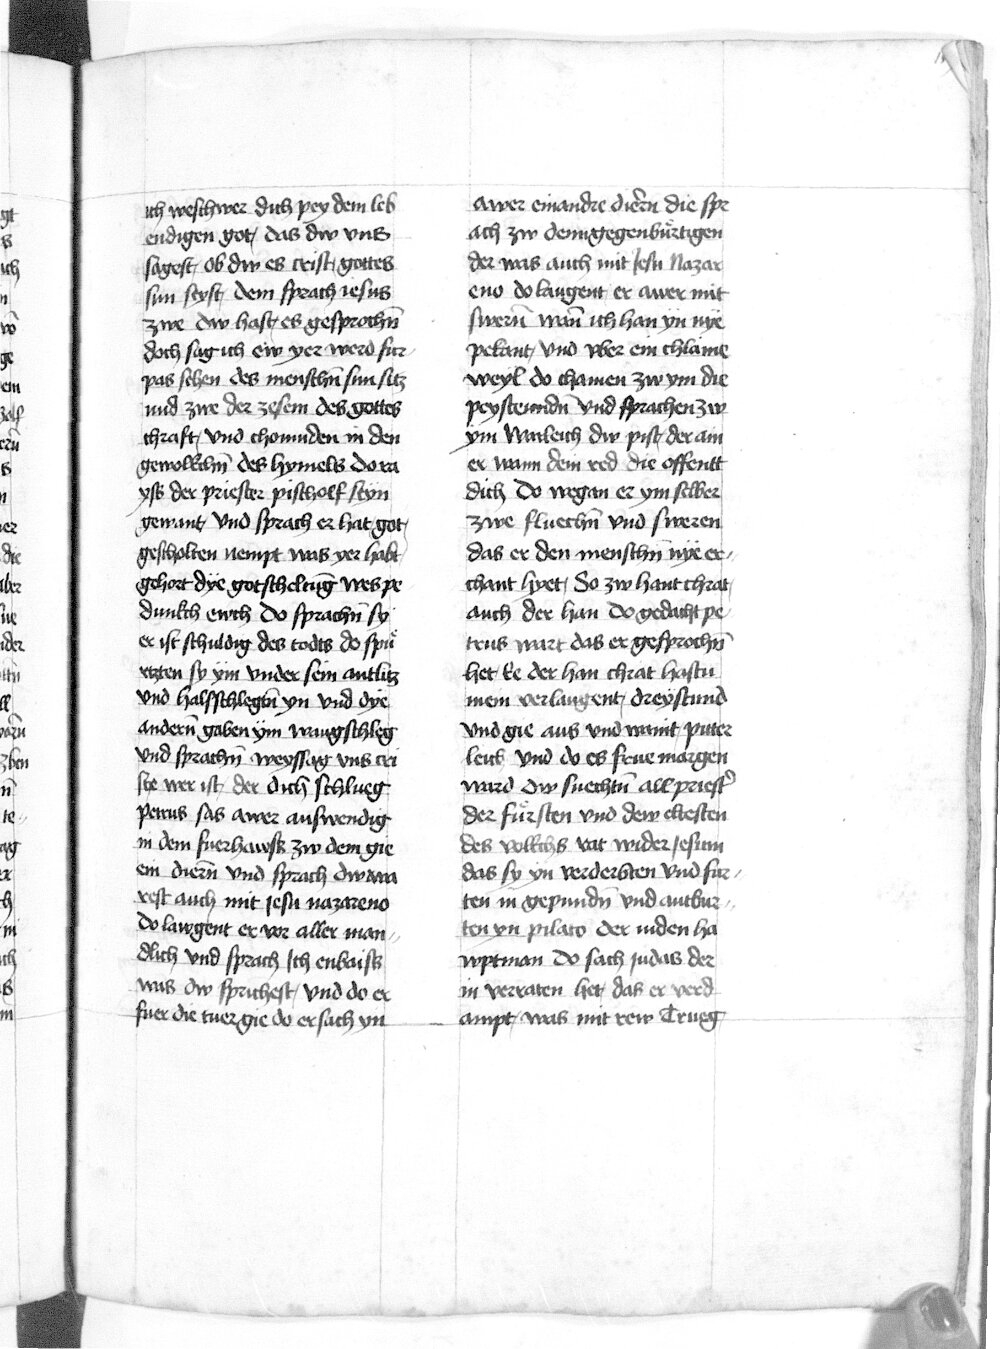 ich weschwer dich pey dem leb
endigen got das dw vns
sagest ob dw es crist gottes
sun seyst dem sprach iesus
zwe dw hast es gesprochn̄
doch sag ich ew yer werd fur
pas sehen des menschn̄ sun sitz
und zwe der zesem des gottes
chraft vnd chomnden in den
gewolkchn̄ des hymels do ra
yss der priester pischolf seyn
gewant vnd sprach er hat got
gescholten nempt was yer habt
gehort dye gotscheltūg wes pe
dunkch ewch do sprachn̄ sy
er ist schuldig des todts do spu
rtzten sy ym vnder sein antlitz
vnd halsschlegtn̄ yn vnd dye
andern̄ gaben ym wangschleg
vnd sprachn̄ weyssag vns cri
ste wer ist der dich schlueg
Petrus sas awer auswendig
in dem fuerhawss zw dem gie
ein diern̄ vnd sprach dw wa
rest auch mit jesu nazareno
do lawgent er vor aller man
dlich vnd sprach Ich enbaiss
was dw sprichest vnd do er
fuer die tuer gie do er sach yn
awer ein andre diern̄ die spr
ach zw dem gegenburtigen
der was auch mit Jesu Nazar
eno do laugent er awer mit
swern̄ wan̄ ich han yn nye
pekant vnd vber ein chlaine
weyl do chamen zw ym die
peystenndn̄ vnd sprachen zw
ym Warleich dw pist der ain
er wann dein red die offentt
dich Do wegan er ym selber
zwe fluechn̄ vnd sweren
das er den menschn̄ nye er
chant hyet So zw hant chrat
auch der han Do gedacht pe
trus wart das er gesprochn̄
het Ee der han chrat hastu
mein verlaugent dreystund
vnd gie aus vnd waint pitter
leich vnd do es frue margen
ward dw suechtn̄ all priest
der fursten vnd dew eltesten
des volkchs rat wider Jesum
das sy yn verderbten vnd fur
ten in gepundn̄ vnd antbur
ten yn pilato der iuden ha
wptman Do sach judas der
in verraten het das er verd
ampt was mit rew Trueg